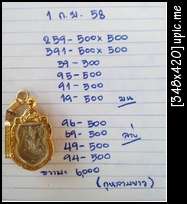 1 ก.พ. 58
259-500x500
391-500x500
39-500
95-500
91-500
19-500 บน
96-500
69-500 ล่าง
49-500
94-500
6,000
[348x420] upic.me